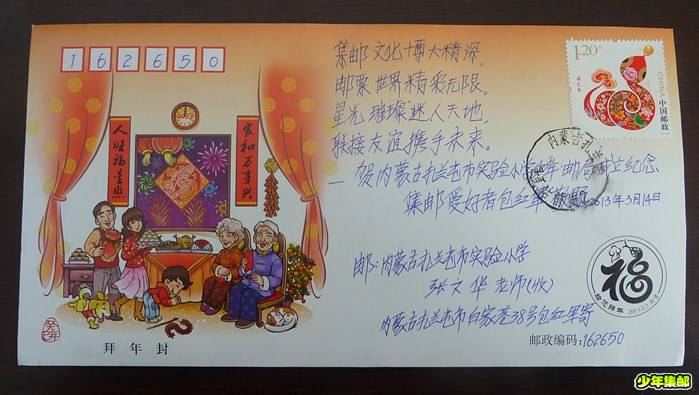 162650
集邮文化博大精深,
邮票世界精彩无限。
星光璀璨迷人天地,
联接友谊携手未来。
—贺内蒙古扎兰屯市实验小学少年邮局成立纪念
集邮爱好者包红军敬题 2013年3月14日
1.20元
CHINA
中国邮政
内蒙古扎兰屯
家和万事兴
人旺福星照
邮:内蒙古扎兰屯市实验小学
张文华老师(收)
内蒙古扎兰屯市白家巷38号包红军寄
邮政编码:162650
福
拜年封
少年集邮